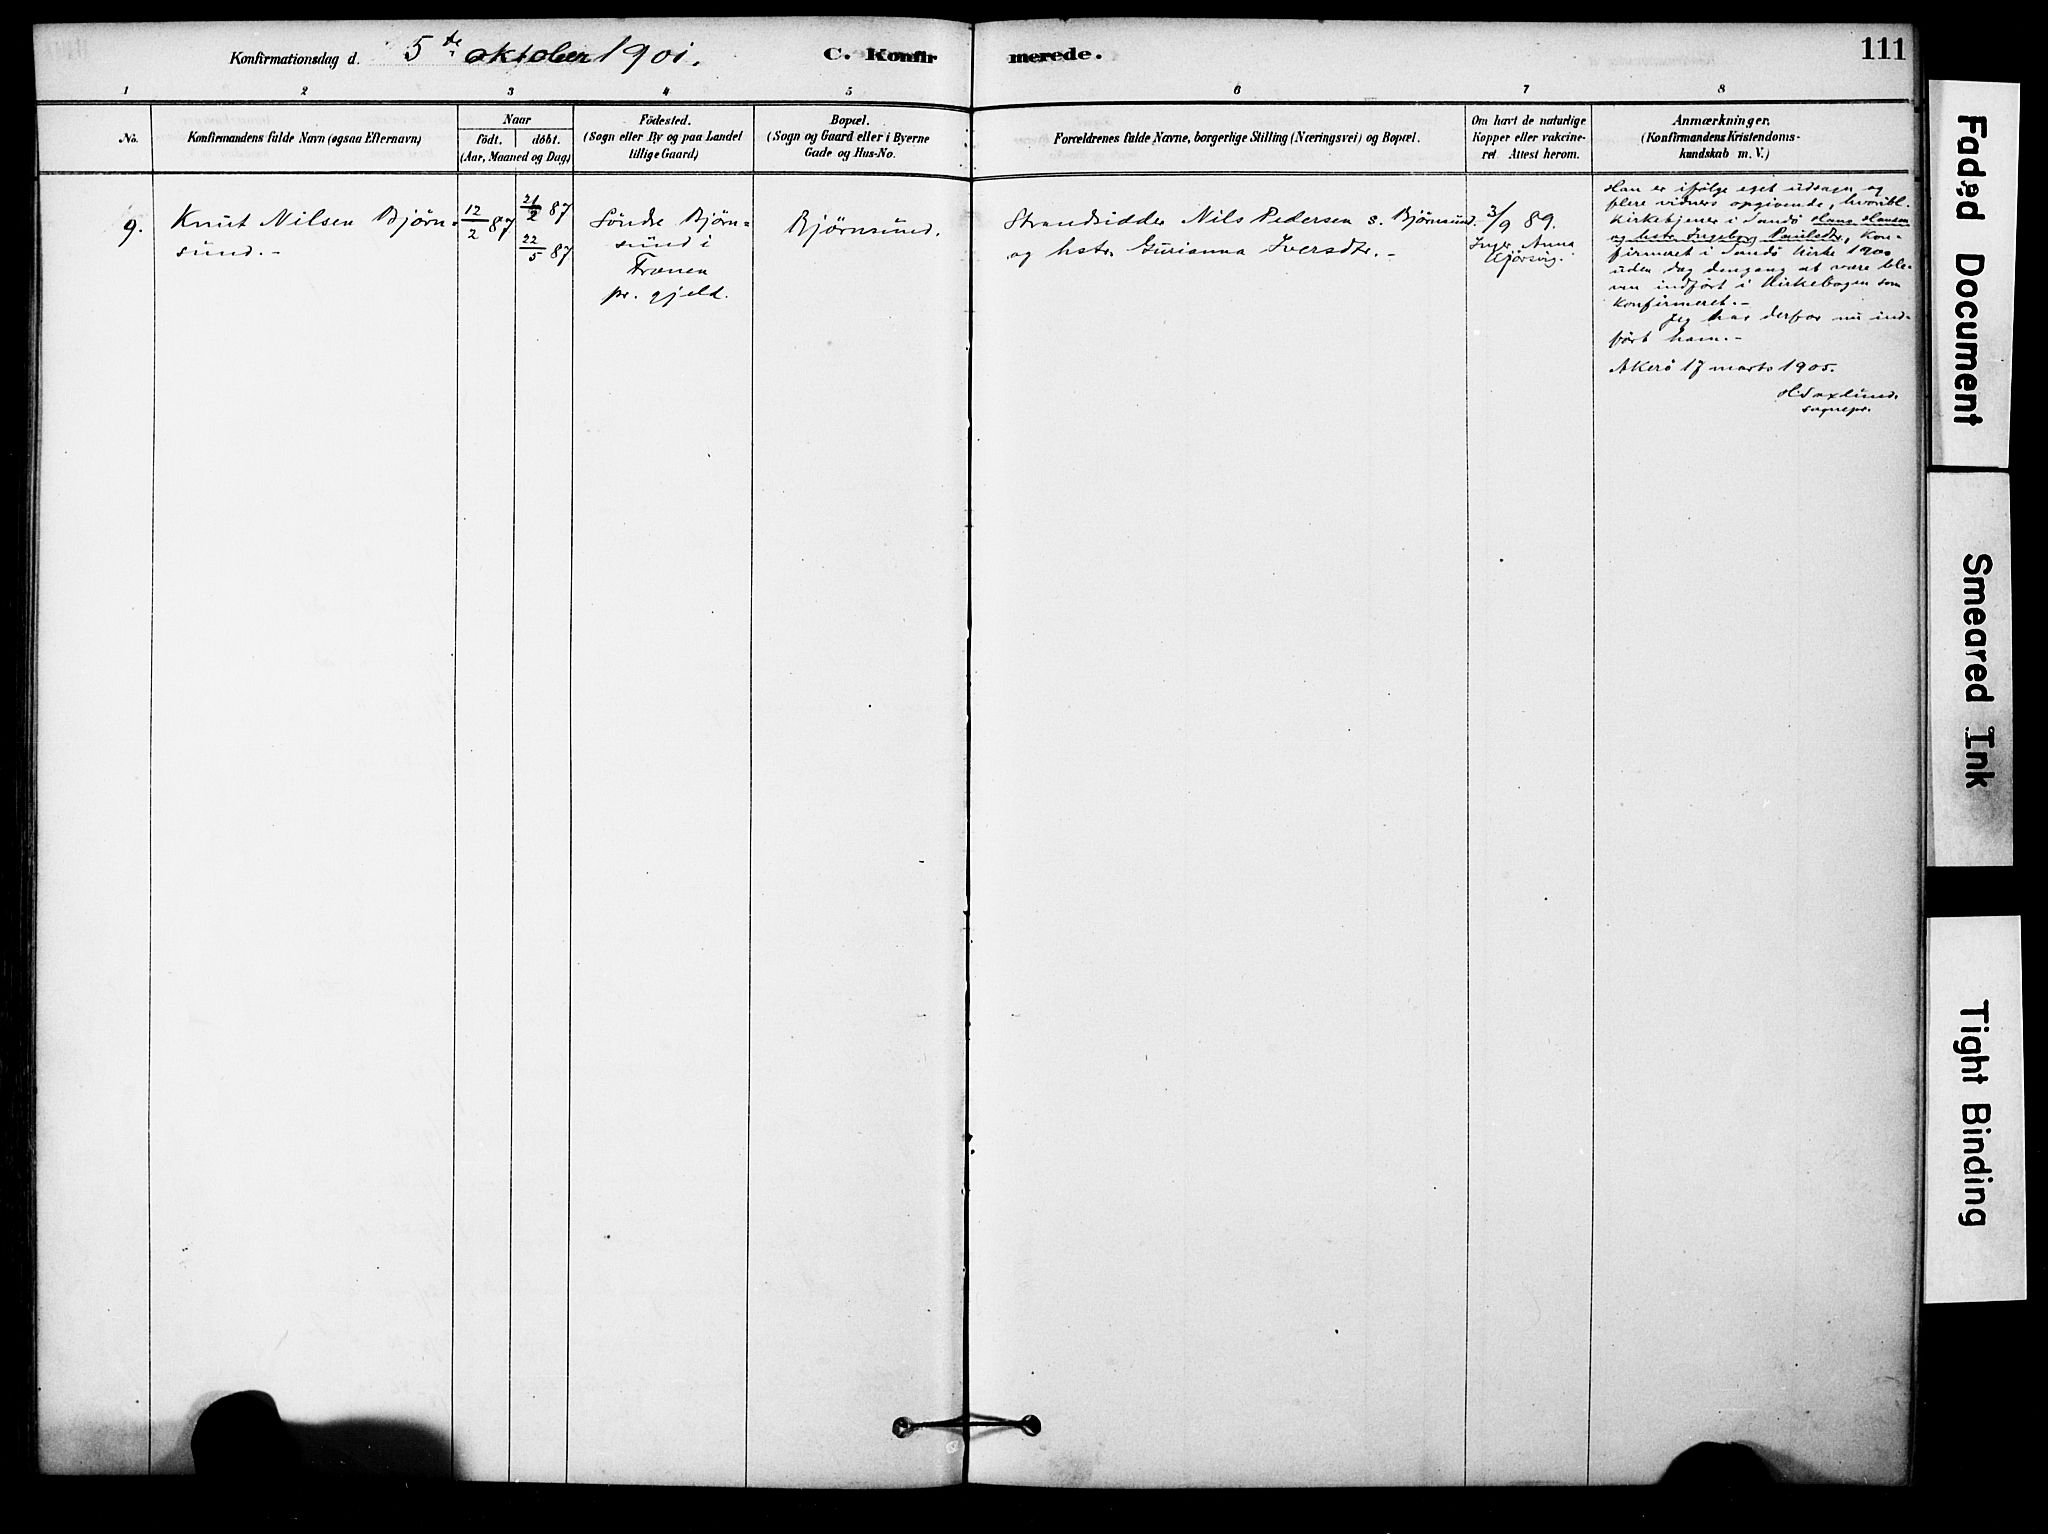 Konfirmationsdag d. 5te oktober 1901. C. Konfirmerede. 111
1 2 3 4 5 6 7 8
No.
Konfirmandens fulde Navn (ogsaa Efternavn)
Naar
födt. döbt.
(Aar, Maaned og Dag)
Födested.
(Sogn eller By og paa Landet
tillige Gaard)
Bopæl.
(Sogn og Gaard eller i Byerne
Gade og Hus-No.
Forældrenes fulde Navne, borgerlige Stilling (Næringsvei) og Bopæl.
Om havt de naturlige
Kopper eller vakcine-
ret. Attest herom.
Anmærkninger.
(Konfirmandens Kristendoms-
kundskab m. V.)
9.
Knut Nilsen Bjørn-
sund.-
12/2 87
21/2 87
22/5 87
Söndre Bjørn-
sund i
Frænen
pr. gjeld.
Bjørnsund.
Strandsidder Nils Pedersen s. Bjørnsund.
og hstr. Gurianna Iversdtr.-
3/9 89.
Inger Anna
Han er ifølge eget udsagn og
flere vidners opgivende, hvoribl.
kirketjener i Sandö Hans Hansen
og hstr. Ingeborg Paulsdtr., kon-
firmeret i Sandö Kirke 1900
uden dog dengang at være ble-
ven indført i Kirkebogen som
konfirmeret.-
Jeg har derfor nu ind-
ført ham.-
Akerö 17 marts 1905.
H Saxlund.
sognepr.
Faded Document
Smeared Ink
Tight Binding